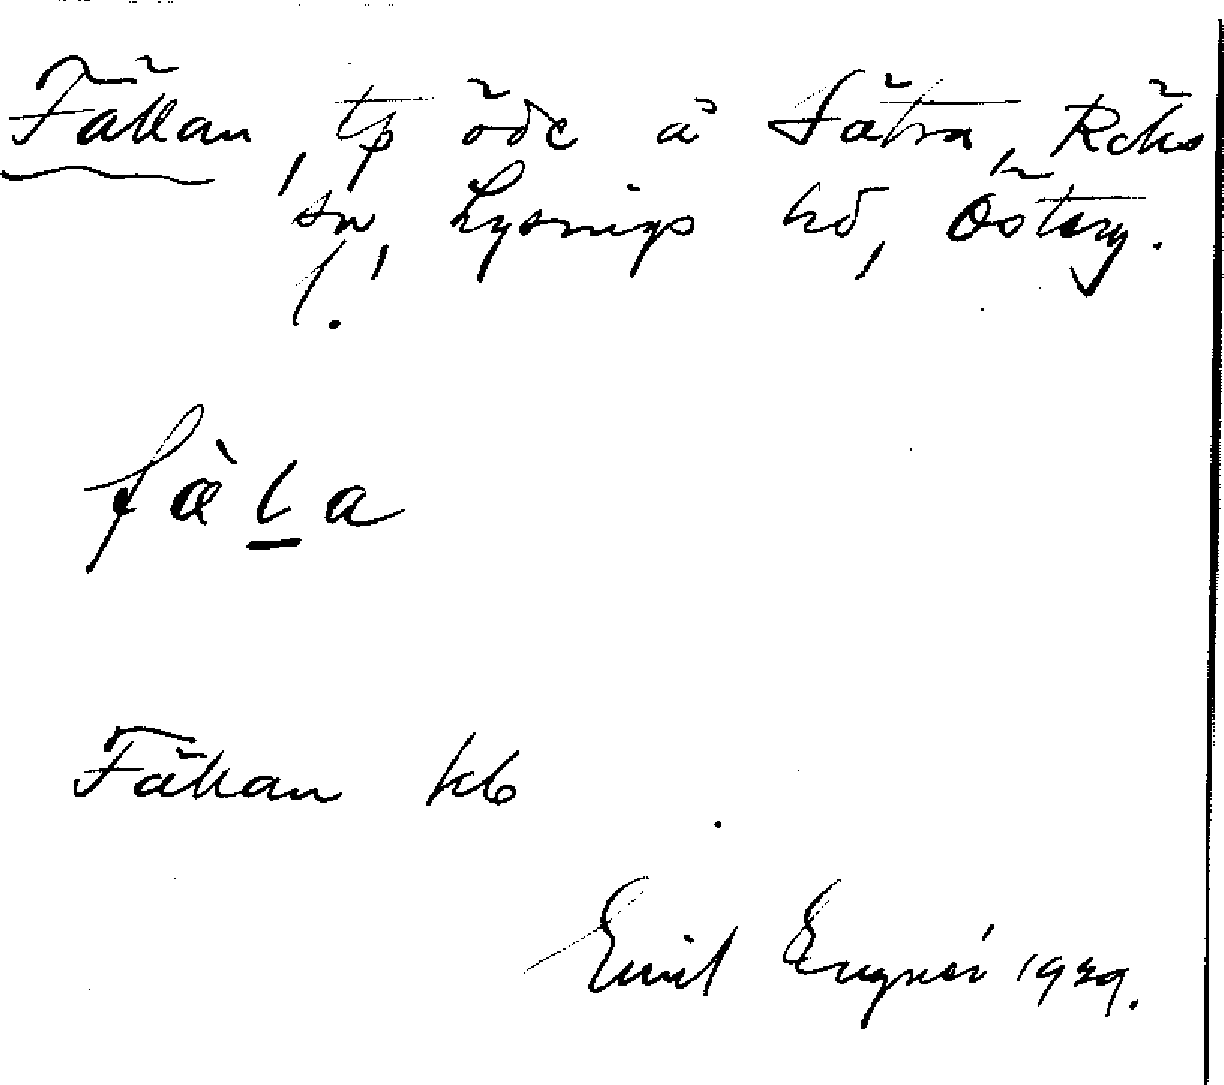 Fällan, tp öde å Sätra, Röks
sn, Lysings hd, Österg.
l.
fæ̀l̲a
Fällan kb
Emil Engnér 1929.